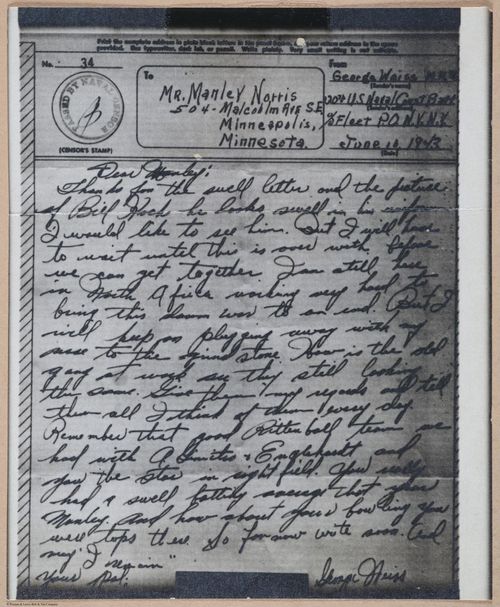 Print the complete address in plain block letters in the panel below, and your return address in the space
provided. Use typewriter, dark ink, or pencil. Write plainly. Very small writing is not suitable.
No. 34
To
From
PASSED BY NAVAL CENSOR
(CENSOR'S STAMP)
MR. Manley Norris
504 - Malcolm AVE S.E
Minneapolis,
Minnesota.
George Weiss
(Sender's name)
1204 U.S. Naval Const Batt
(Sender's address)
% Fleet P.O. N.Y. N.Y.
June 10, 1943
(Date)
Dear Manley:
Thanks for the swell letter and the picture
of Bill Koch he looks swell in his uniform
I would like to see him. But I will have
to wait until this is over with before
we can get together I am still here
in North Africa working very hard to
bring this damn war to an end But I
will keep on plugging away with my
nose to the grind stone. How is the old
gang at work are they still looking
the same. Give them my regards and tell
them all I think of them every day.
Remember that good Kittenball team we
had with A. & Englehardt and
you the star in right field. You really
had a swell batting average that year
Manley. And how about your bowling you
were tops there. So for now write soon. And
my "
your pal.
George Weiss